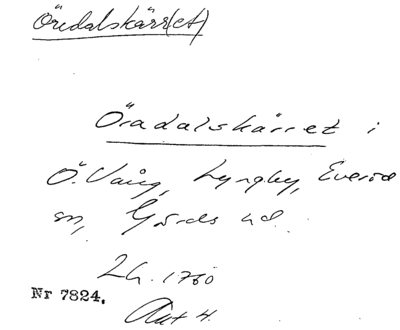 Öredalskärr(et)
Öradalskärret i
Ö. Vång, Lyngby, Everöd
sn, Gärds hd.
Lh. 1760
Nr 7824.
Akt 4.